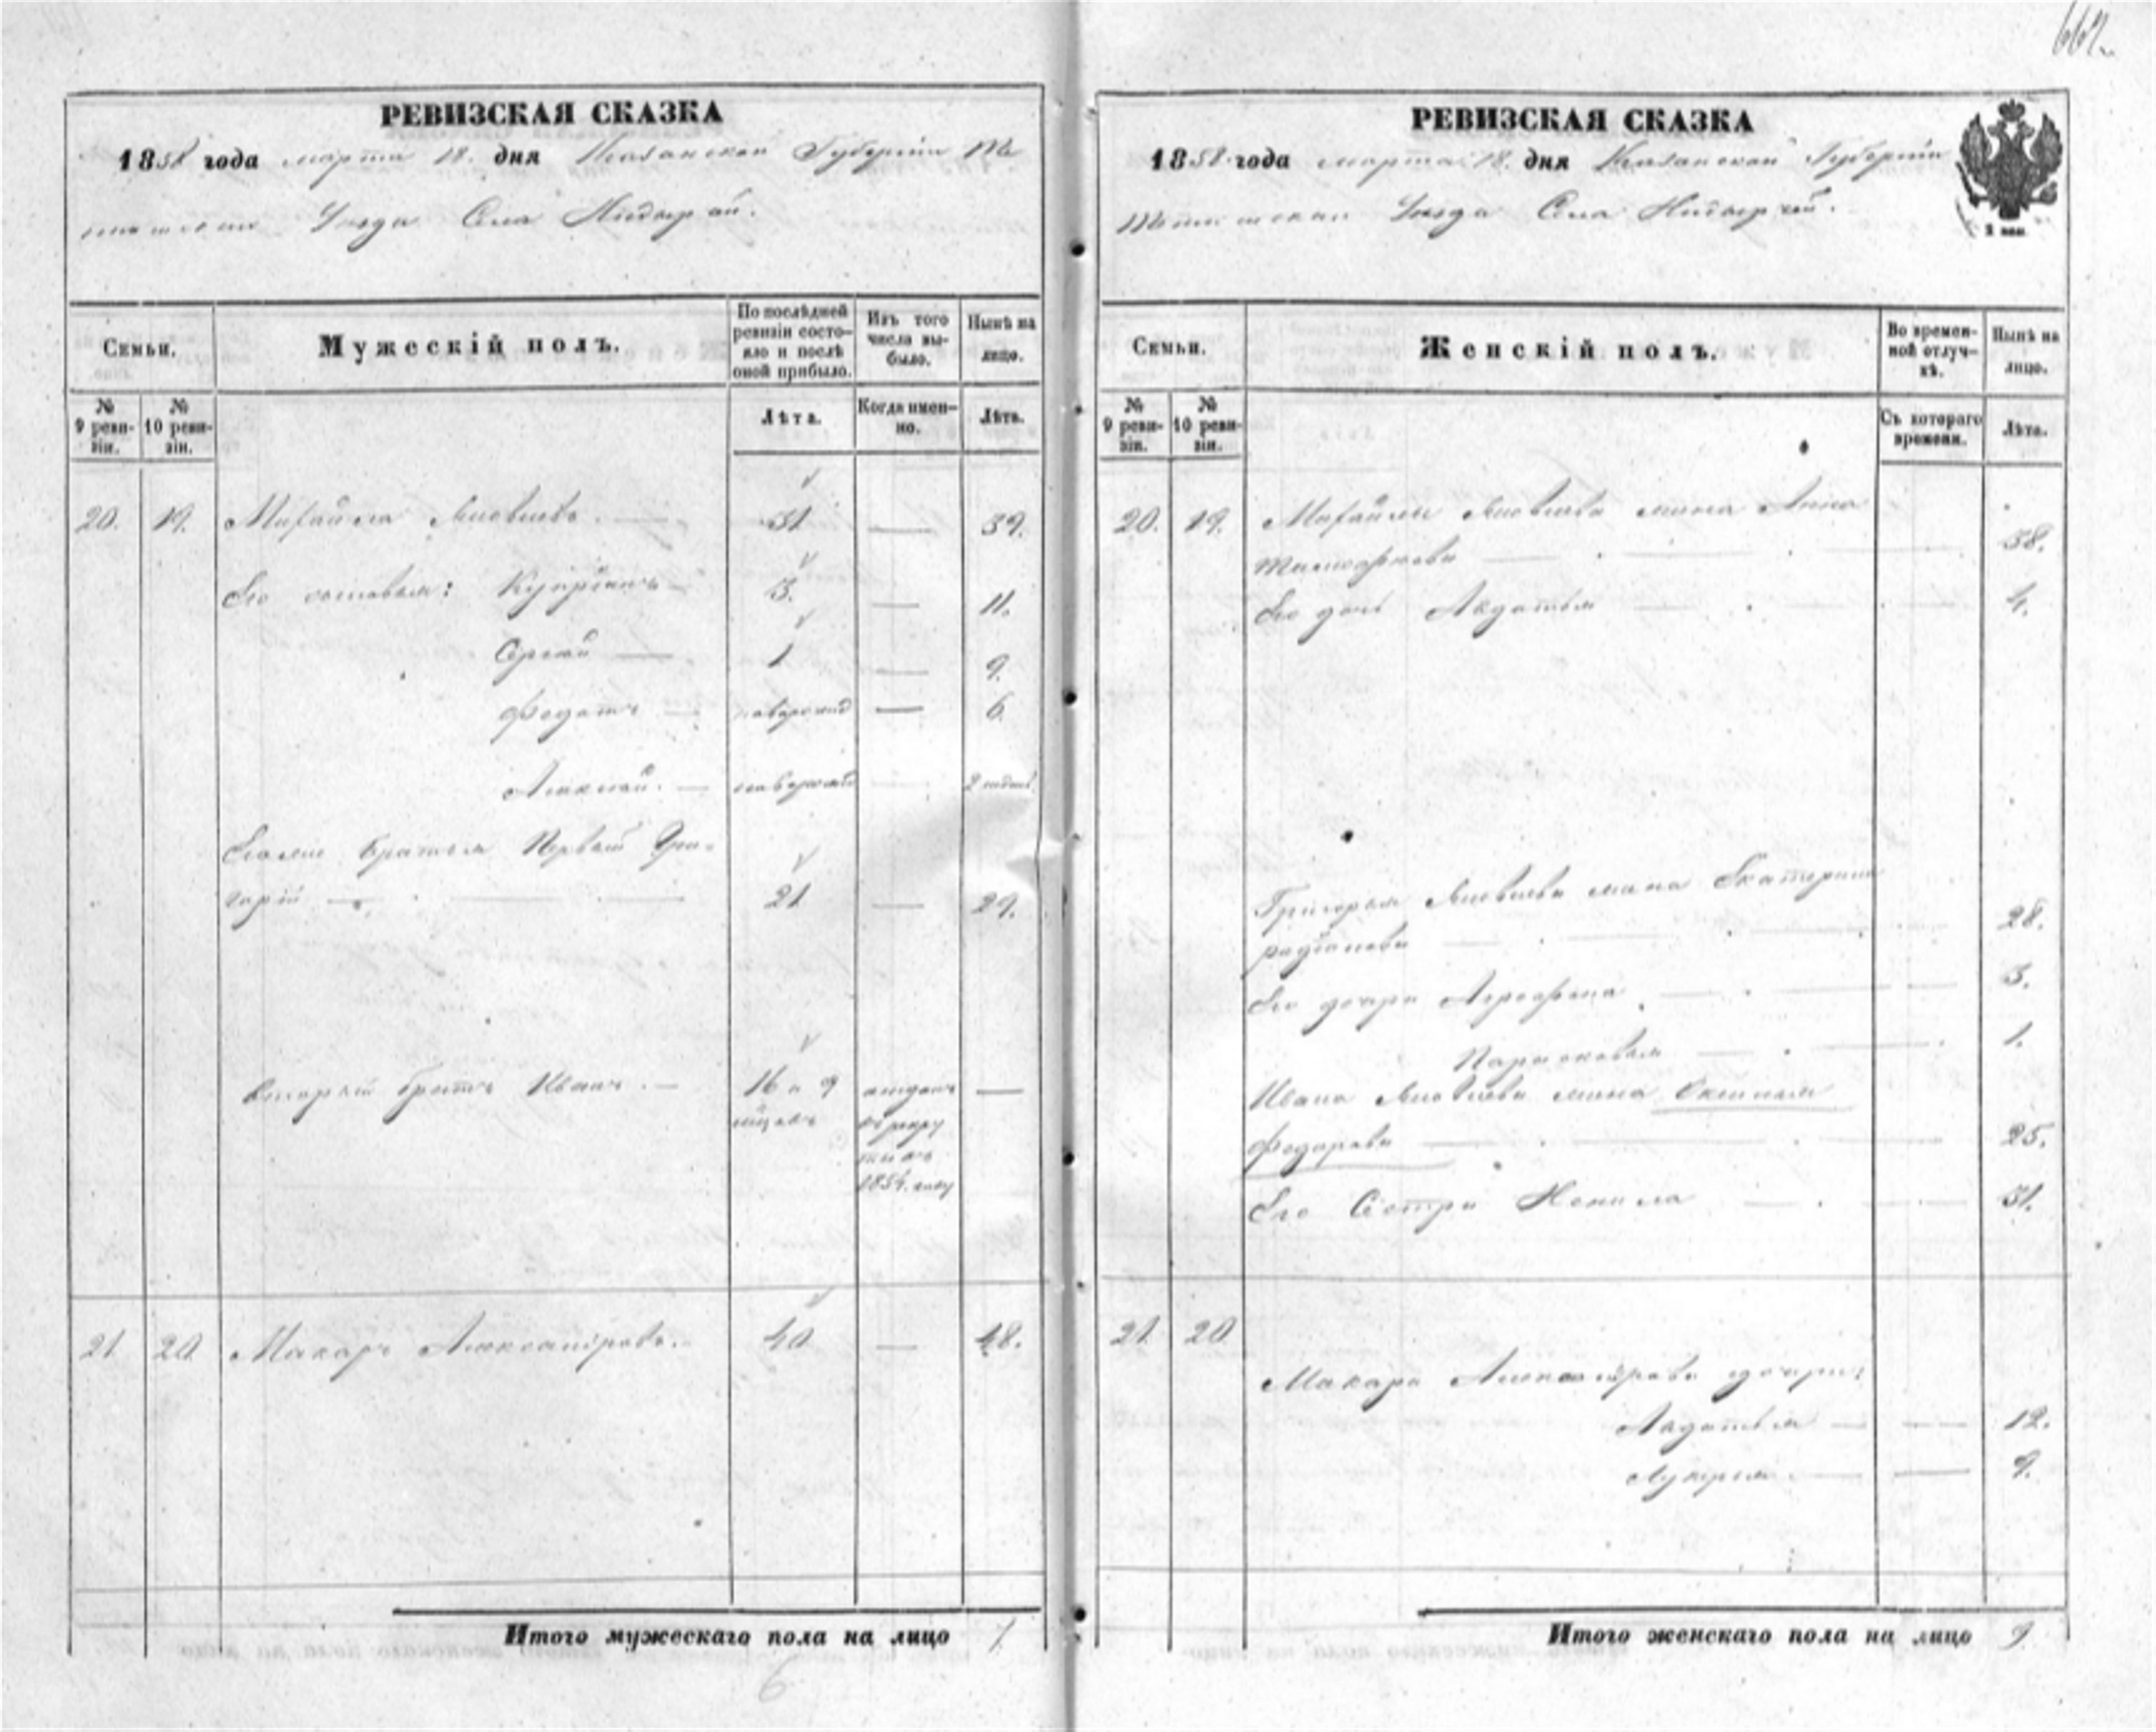 667.
РЕВИЗСКАЯ СКАЗКА
1858 года марта 18. дня Казанской Губерніи Те
тюшскаго Уѣзда Села
Семьи.
Мужескій полъ.
По послѣдней ревизіи состояло и послѣ оной прибыло.
Изъ того числа выбыло.
Нынѣ на лицо.
№ 9 ревизіи.
№ 10 ревизіи.
Лѣта.
Когда именно.
Лѣта.
20. 19. Михайла Яковлевъ. 31 — 39.
Его сыновья: Кипріянъ 3. — 11.
Сергѣй — 1 — 9.
Федотъ — новорожд — 6
Алексѣй. — новорожд — 2 недѣл
Братья Первый Гри-
горій — 21 — 29.
Вторый братъ Иванъ. — 16 и 9 отданъ —
мѣцовъ въ рекру
ты въ
1854. году
21. 20. Макаръ Александровъ. 40 — 48.
Итого мужескаго пола на лицо 7.
6
РЕВИЗСКАЯ СКАЗКА
1858 года марта 18. дня Казанской Губерніи
Тетюшскаго Уѣзда Села
Семьи.
Женскій полъ.
Во временной отлучкѣ.
Нынѣ на лицо.
№ 9 ревизіи.
№ 10 ревизіи.
Съ котораго времени.
Лѣта.
20. 19. Михайлы Яковлева жена Анна
38.
Его дочь Авдотья — 4.
Григорья Яковлева жена Екатерина
радіонова — 28.
Его дочри Аграфена — 3.
Парасковья — 1.
Ивана Яковлева жена Аксинья
федорова — 25.
Его Сестра Ненила — 31.
21. 20.
Макара Александрова дочри:
Авдотья — 12.
Лукерья — 9.
Итого женскаго пола на лицо 9.